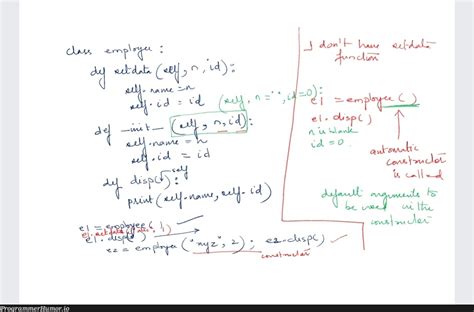 class employee :
def setdata (self, n, id) :
self.name = n
self.id = id
(self, n = '', id = 0) :
def __init__ (self, n, id) :
self.name = n
self.id = id
def disp( self
print (self.name, self.id)
e1 = employee (
e1.disp()
e2 = employee ("xyz", 2) ; e2.disp()
constructor
I don't have setdata
function
e1 = employee ( )
e1.disp ( )
n is blank
id = 0
automatic
constructor
is called
default arguments to
be used in the
constructor
ProgrammerHumor.io